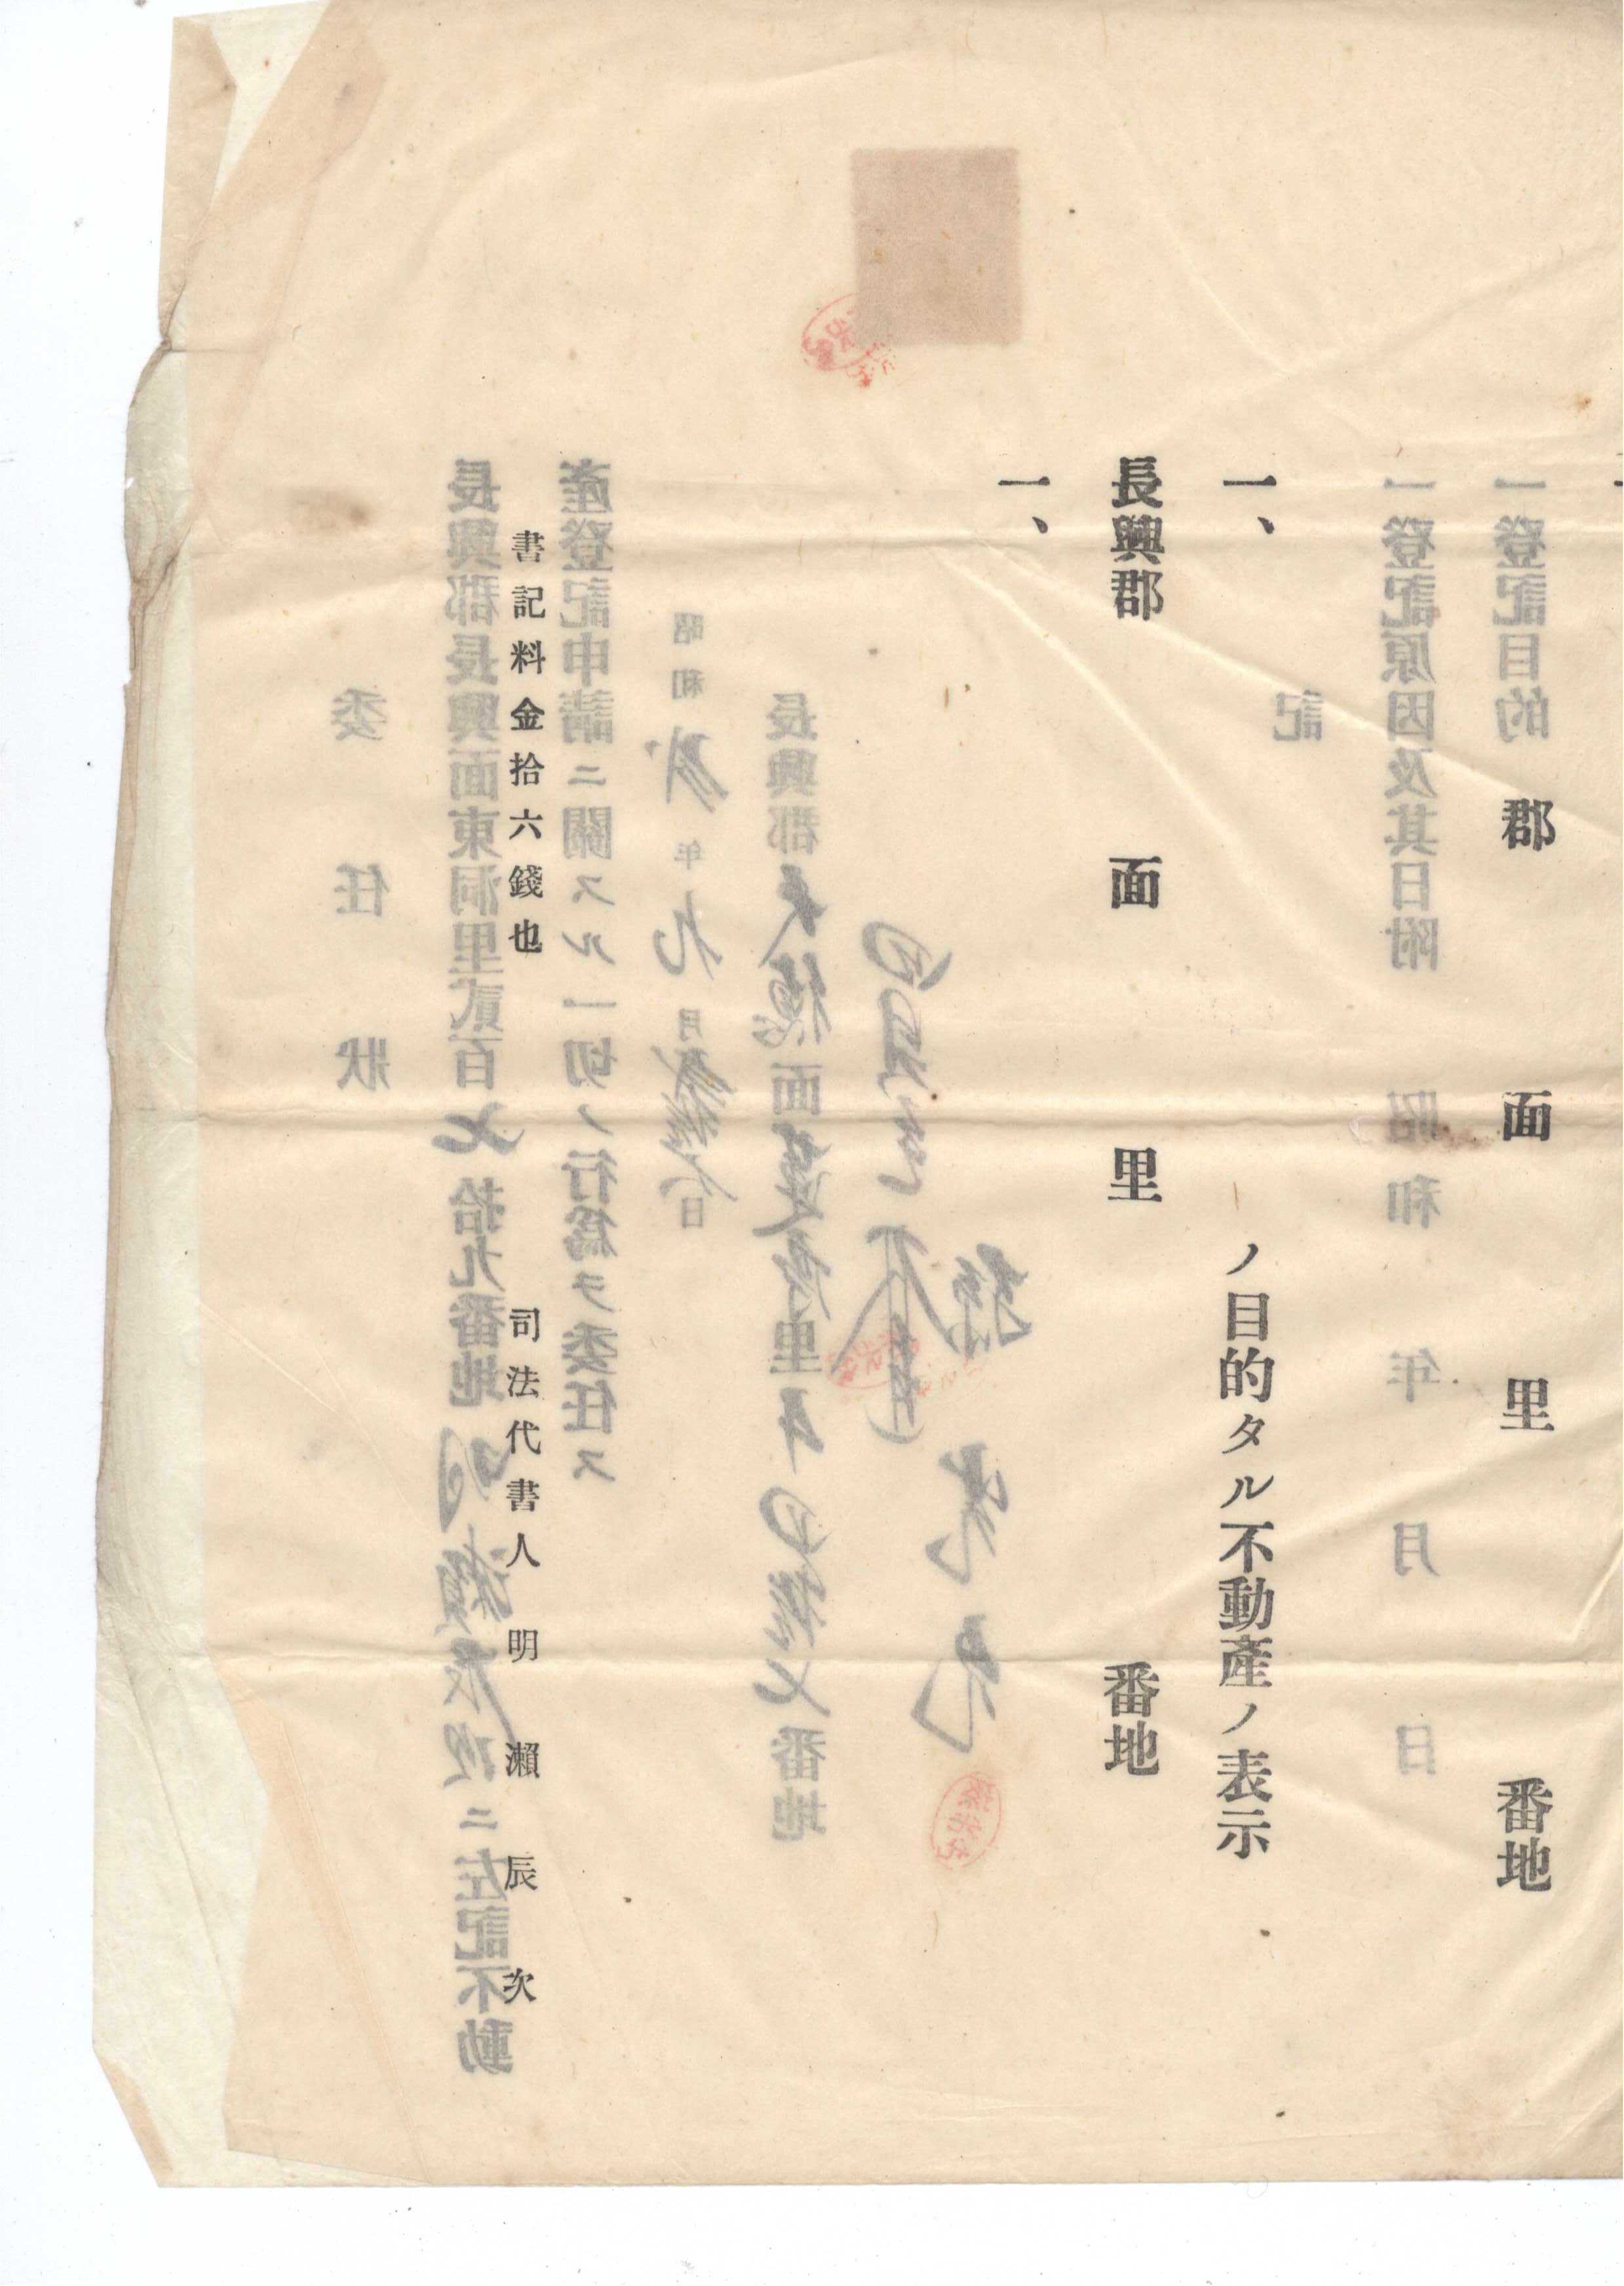 郡 面 里 番地
一、 ノ目的タル不動産ノ表示
長興郡 面 里 番地
一、
書記料金拾六錢也 司法代書人 明瀨辰次
委任狀
長興郡長興面東洞里貳百七拾九番地明瀨辰次ニ左記不動
産登記申請ニ關スル一切ノ行爲ヲ委任ス
昭和 貳年九月 日
長興郡大德面 里 番地
記
一登記原因及其日附 昭和 年 月 日
一登記目的